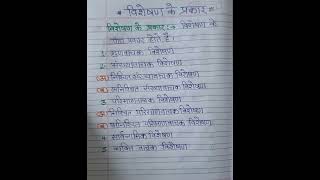 * विशेषण के प्रकार *
विशेषण के प्रकार :→ विशेषण के
पाँच प्रकार होते हैं।
1. गुणवाचक विशेषण
2. संख्यावाचक विशेषण
(अ) निश्चित संख्यावाचक विशेषण
(ब) अनिश्चित संख्यावाचक विशेषण
3. परिमाणवाचक विशेषण
(अ) निश्चित परिमाणवाचक विशेषण
(ब) अनिश्चित परिमाणवाचक विशेषण
4. सार्वनामिक विशेषण
5. व्यक्ति वाचक विशेषण